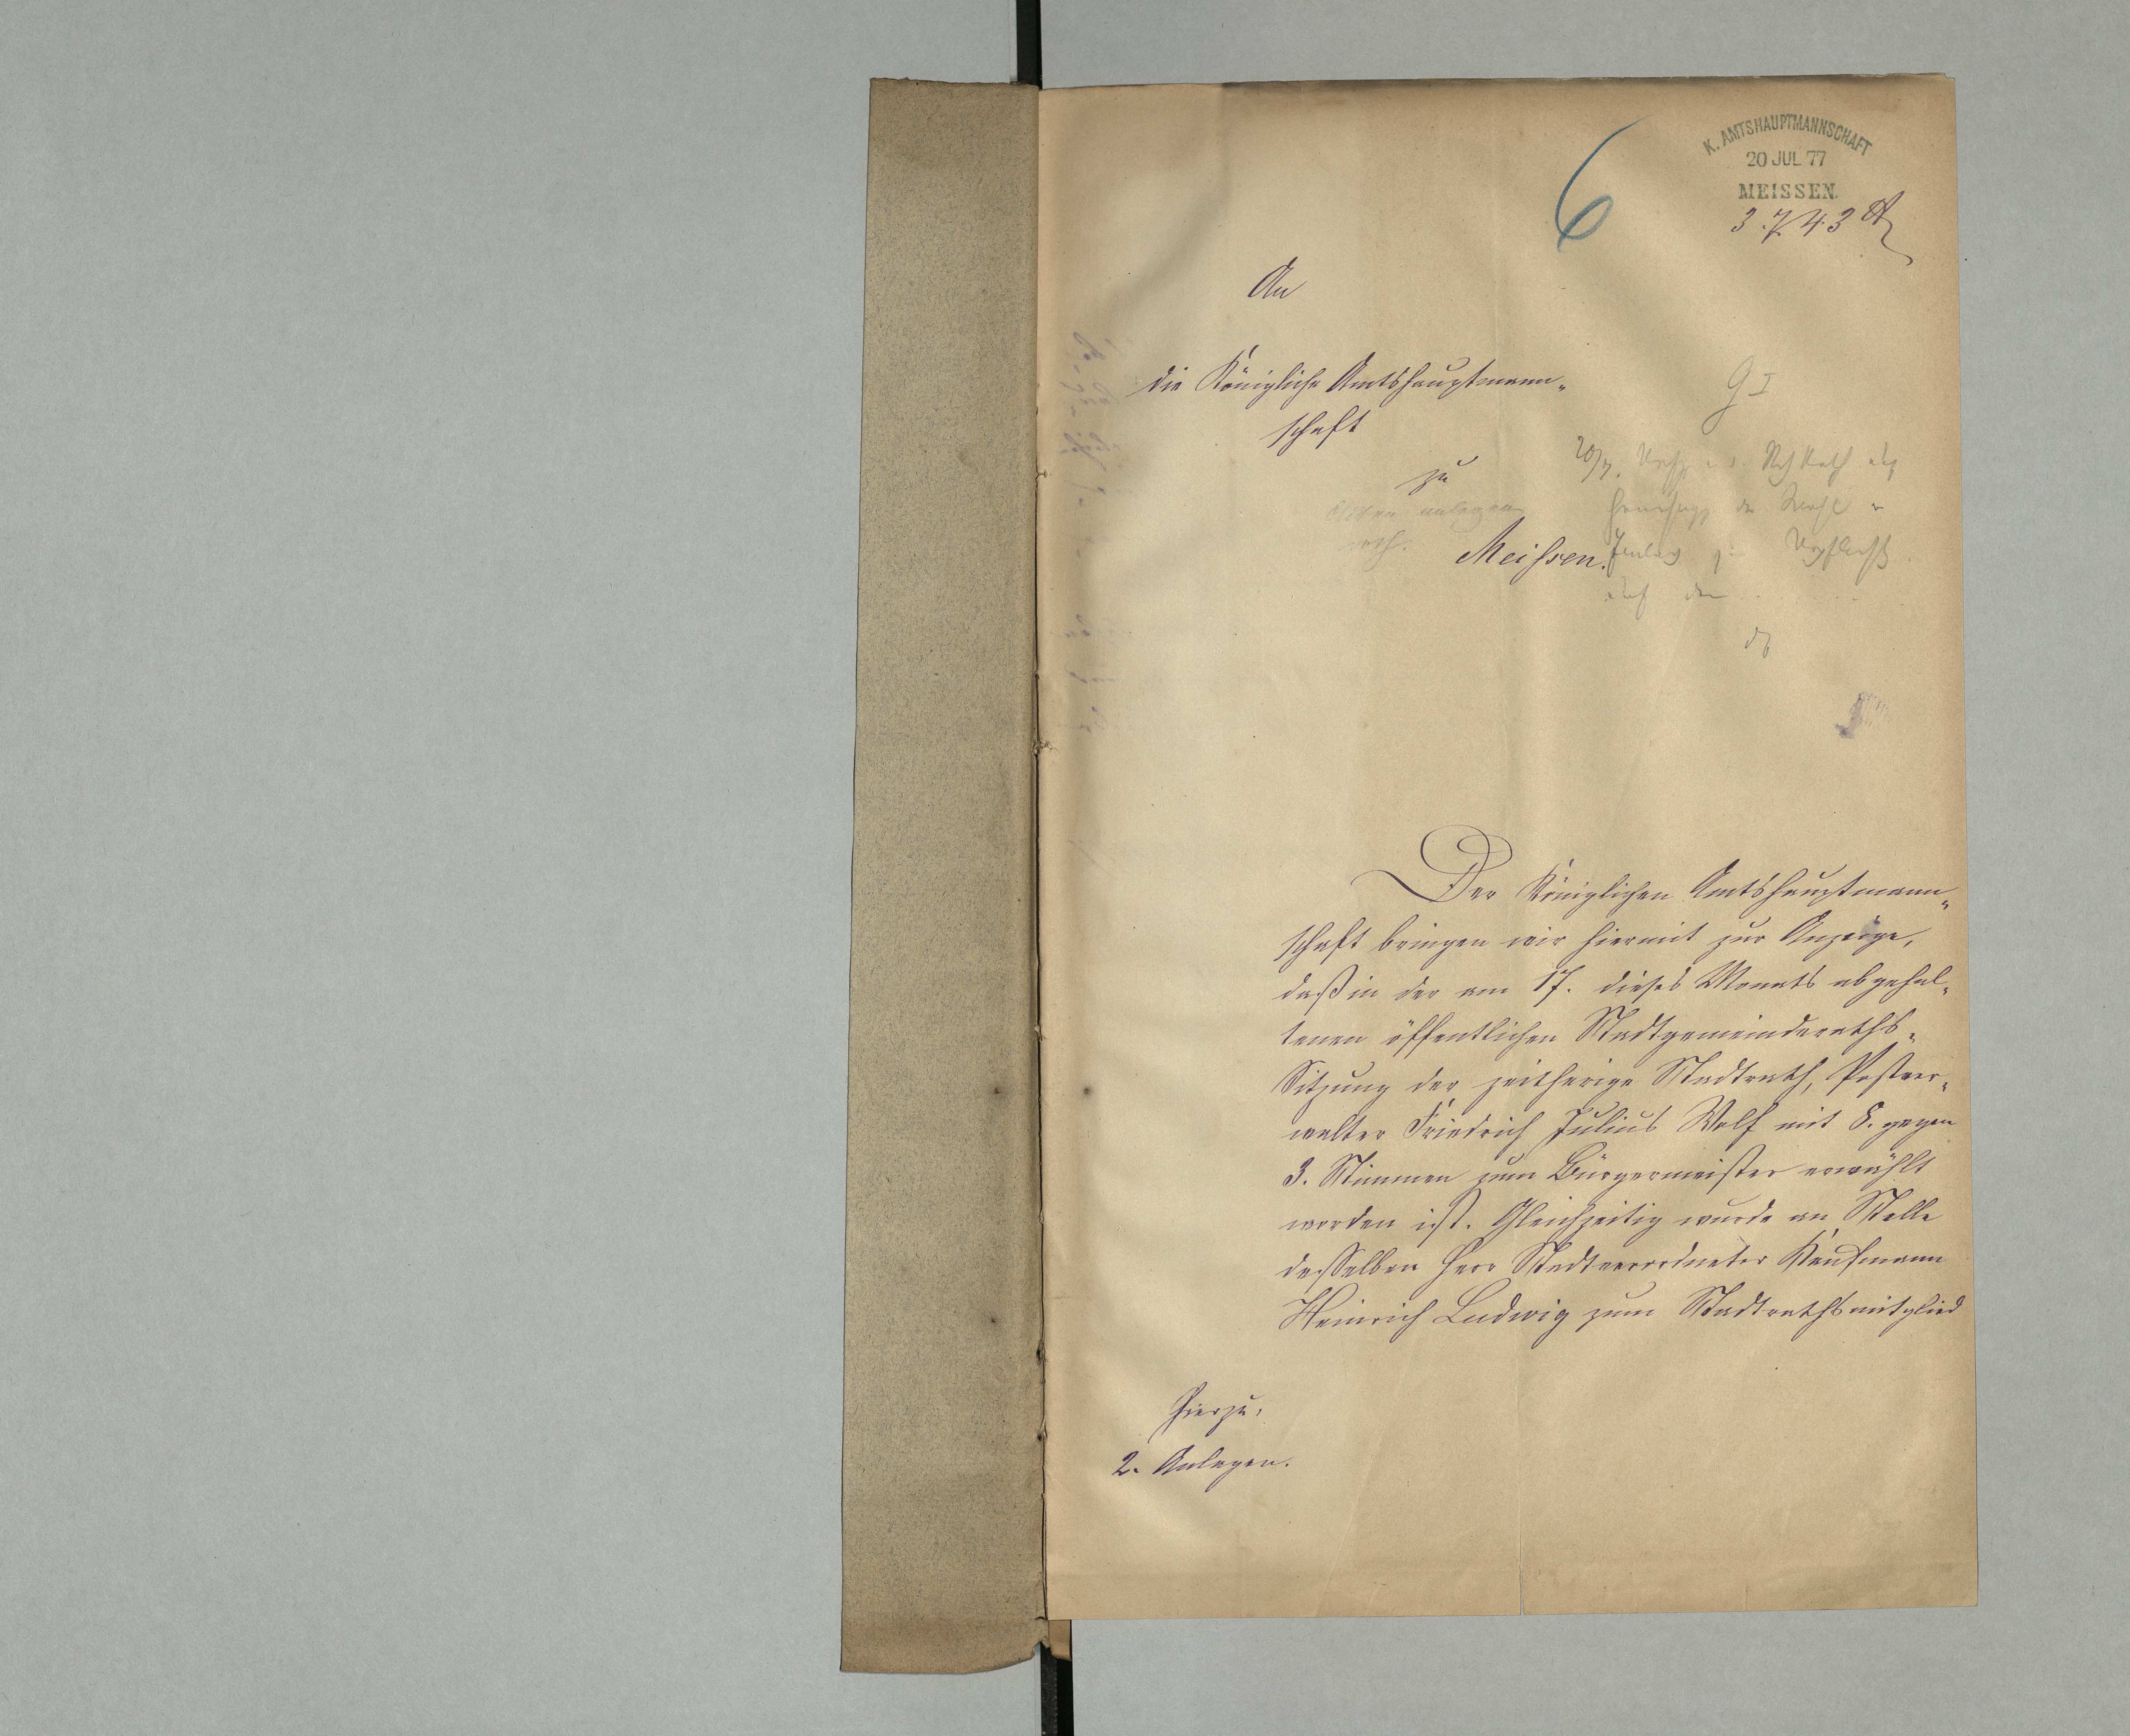 K. AMTSHAUPTMANNSCHAFT
20 JUL 77
MEISSEN.
6
3743 A
An
die Königliche Amtshauptmann-
schaft
zu
Meissen.
G I
20/7.
Akten anlegen
Der Königlichen Amtshauptmann-
schaft bringen wir hiermit zur Anzeige,
daß in der am 17. dieses Monats abgehal-
tenen öffentlichen Stadtgemeinderaths-
Sitzung der zeitherige Stadtrath, Postver-
walter Friedrich Julius Wolf mit 8. gegen
3. Stimmen zum Bürgermeister erwählt
worden ist. Gleichzeitig wurde an Stelle
desselben Herr Stadtverordneter Kaufmann
Heinrich Ludwig zum Stadtrathsmitglied
Hierzu:
2. Anlagen.